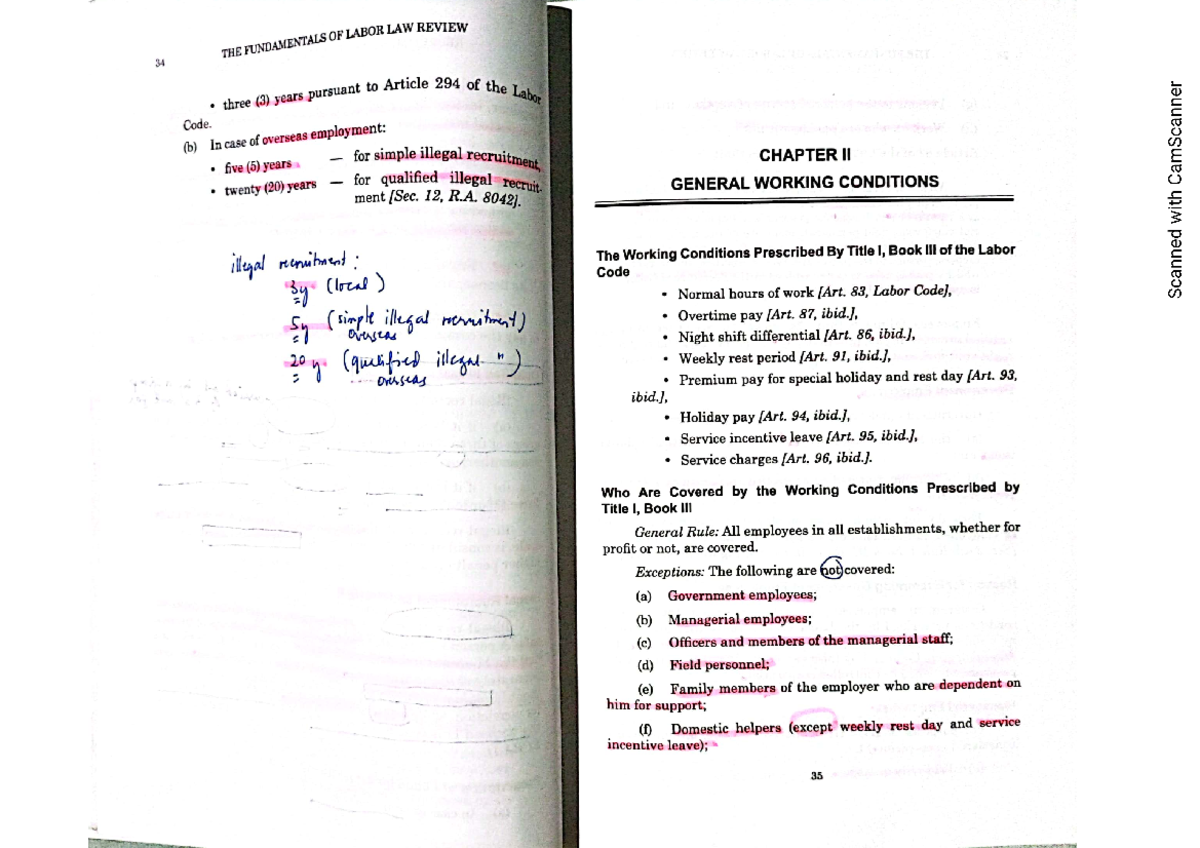 34
THE FUNDAMENTALS OF LABOR LAW REVIEW
• three (3) years pursuant to Article 294 of the Labor
Code.
(b) In case of overseas employment:
• five (5) years — for simple illegal recruitment,
• twenty (20) years — for qualified illegal recruit-
ment [Sec. 12, R.A. 8042].
illegal recruitment:
3y (local)
5y (simple illegal recruitment)
overseas
20 y (qualified illegal ")
overseas
CHAPTER II
GENERAL WORKING CONDITIONS
The Working Conditions Prescribed By Title I, Book III of the Labor
Code
• Normal hours of work [Art. 83, Labor Code],
• Overtime pay [Art. 87, ibid.],
• Night shift differential [Art. 86, ibid.],
• Weekly rest period [Art. 91, ibid.],
• Premium pay for special holiday and rest day [Art. 93,
ibid.],
• Holiday pay [Art. 94, ibid.],
• Service incentive leave [Art. 95, ibid.],
• Service charges [Art. 96, ibid.].
Who Are Covered by the Working Conditions Prescribed by
Title I, Book III
General Rule: All employees in all establishments, whether for
profit or not, are covered.
Exceptions: The following are not covered:
(a) Government employees;
(b) Managerial employees;
(c) Officers and members of the managerial staff;
(d) Field personnel;
(e) Family members of the employer who are dependent on
him for support;
(f) Domestic helpers (except weekly rest day and service
incentive leave);
35
Scanned with CamScanner